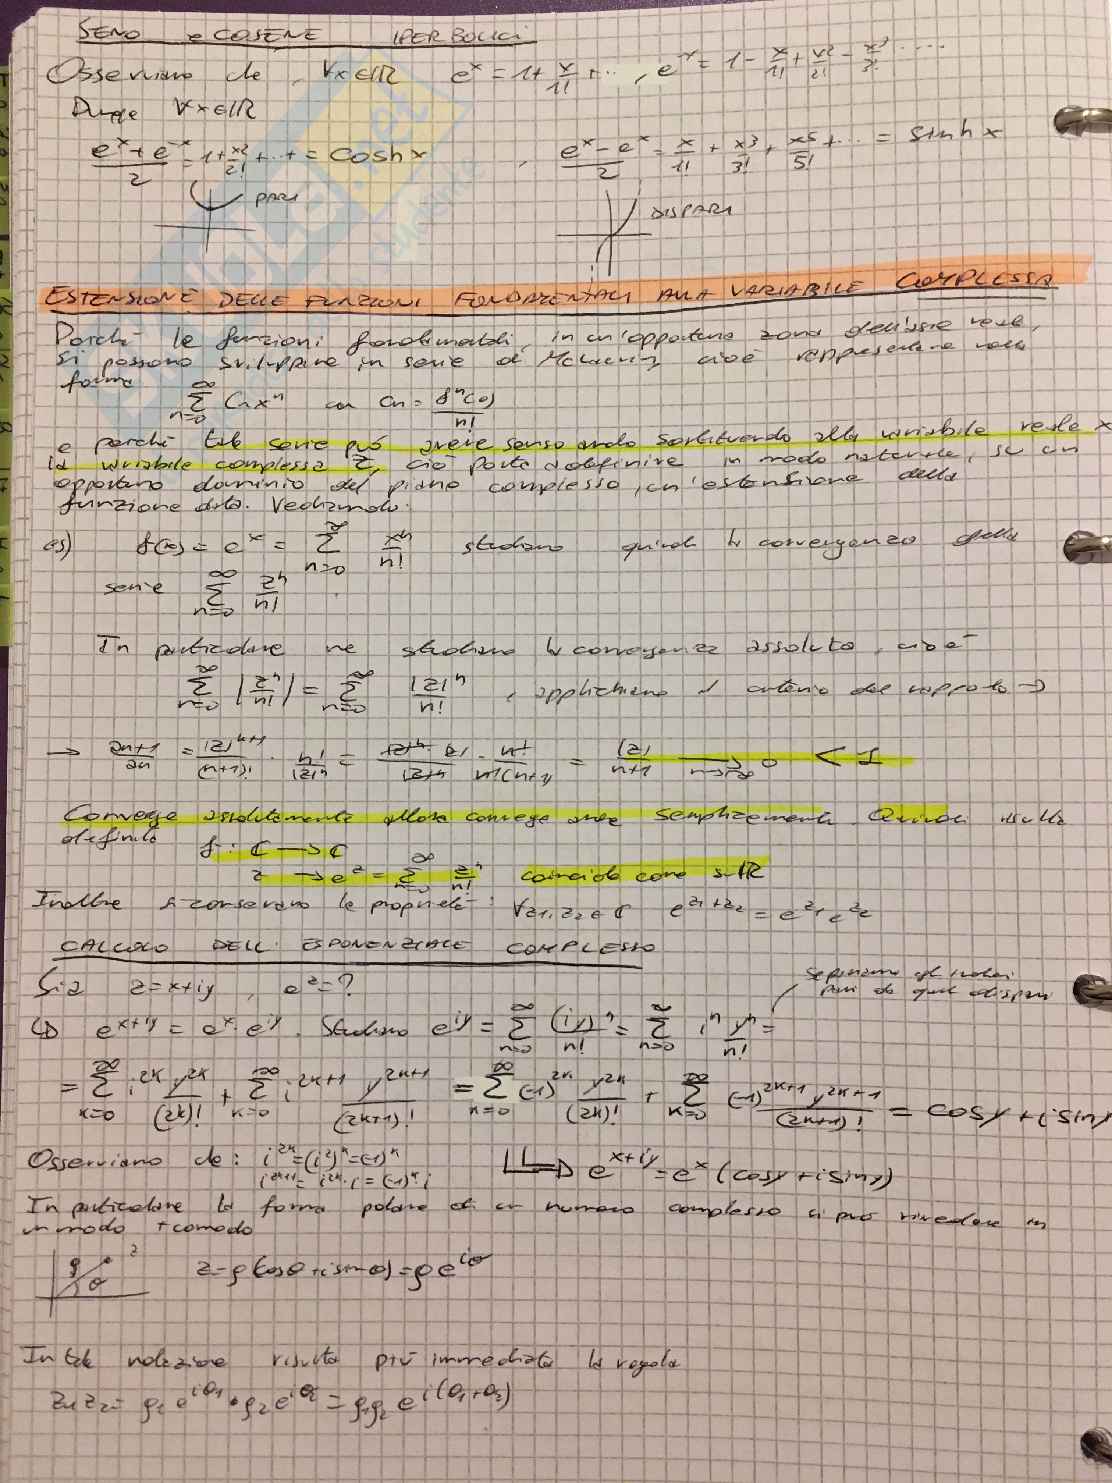 SENO e COSENE IPERBOLICI
Osserviamo che, ∀x∈ℝ e^x = 1 + x/1! + ... , e^-x = 1 - x/1! + x²/2! - x³/3! ....
Dunque ∀x∈ℝ
(e^x + e^-x)/2 = 1 + x²/2! + ... + = cosh x , (e^x - e^x)/2 = x/1! + x³/3! + x⁵/5! + ... = sinh x
PARI DISPARI
ESTENSIONE DELLE FUNZIONI FONDAMENTALI ALLA VARIABILE COMPLESSA
Poiché le funzioni fondamentali, in un'opportuna zona dell'asse reale,
si possono sviluppare in serie di McLaurin cioè rappresentare nella
forma
∞ Σ n=0 Cn x^n con Cn = f^n(0)/n!
e perché tale serie può avere senso anche sostituendo alla variabile reale x
la variabile complessa z, ciò porta a definire in modo naturale, su un
opportuno dominio del piano complesso, un'estensione della
funzione data. Vediamolo:
es) f(x) = e^x = ∞ Σ n=0 x^n/n! studiamo quindi la convergenza della
serie ∞ Σ n=0 z^n/n!
In particolare ne studiamo la convergenza assoluta, cioè
∞ Σ n=0 |z^n/n!| = ∞ Σ n=0 |z|^n/n! , applichiamo il criterio del rapporto →
→ an+1/an = |z|^n+1/(n+1)! · n!/|z|^n = |z|^n·|z|/|z|^n · n!/n!(n+1) = |z|/n+1 → n→∞ 0 < 1
Converge assolutamente allora converge anche semplicemente. Quindi risulta
definita
f: ℂ → ℂ
z → e^z = ∞ Σ n=0 z^n/n! coincide come su ℝ
Inoltre si conservano le proprietà: ∀z1, z2 ∈ ℂ e^z1+z2 = e^z1 e^z2
CALCOLO DELL' ESPONENZIALE COMPLESSO
Sia z=x+iy , e^z=?
separiamo gli indici
pari da quelli dispari
↳ e^x+iy = e^x · e^iy. Studiamo e^iy = ∞ Σ n=0 (iy)^n/n! = ∞ Σ n=0 i^n y^n/n! =
= ∞ Σ k=0 i^2k y^2k/(2k)! + ∞ Σ k=0 i^2k+1 y^2k+1/(2k+1)! = ∞ Σ k=0 (-1)^2k y^2k/(2k)! + ∞ Σ k=0 (-1)^2k+1 y^2k+1/(2k+1)! = cosy + i siny
Osserviamo che: i^2k = (i²)^k = (-1)^k
i^2k+1 = i^2k · i = (-1)^k i
e^x+iy = e^x (cosy + i siny)
In particolare la forma polare di un numero complesso si può rivedere in
in modo + comodo
ρ z θ z = ρ(cosθ + i sinθ) = ρe^iθ
In tale notazione risulta più immediata la regola
z1 z2 = ρ1 e^iθ1 · ρ2 e^iθ2 = ρ1ρ2 e^i(θ1+θ2)